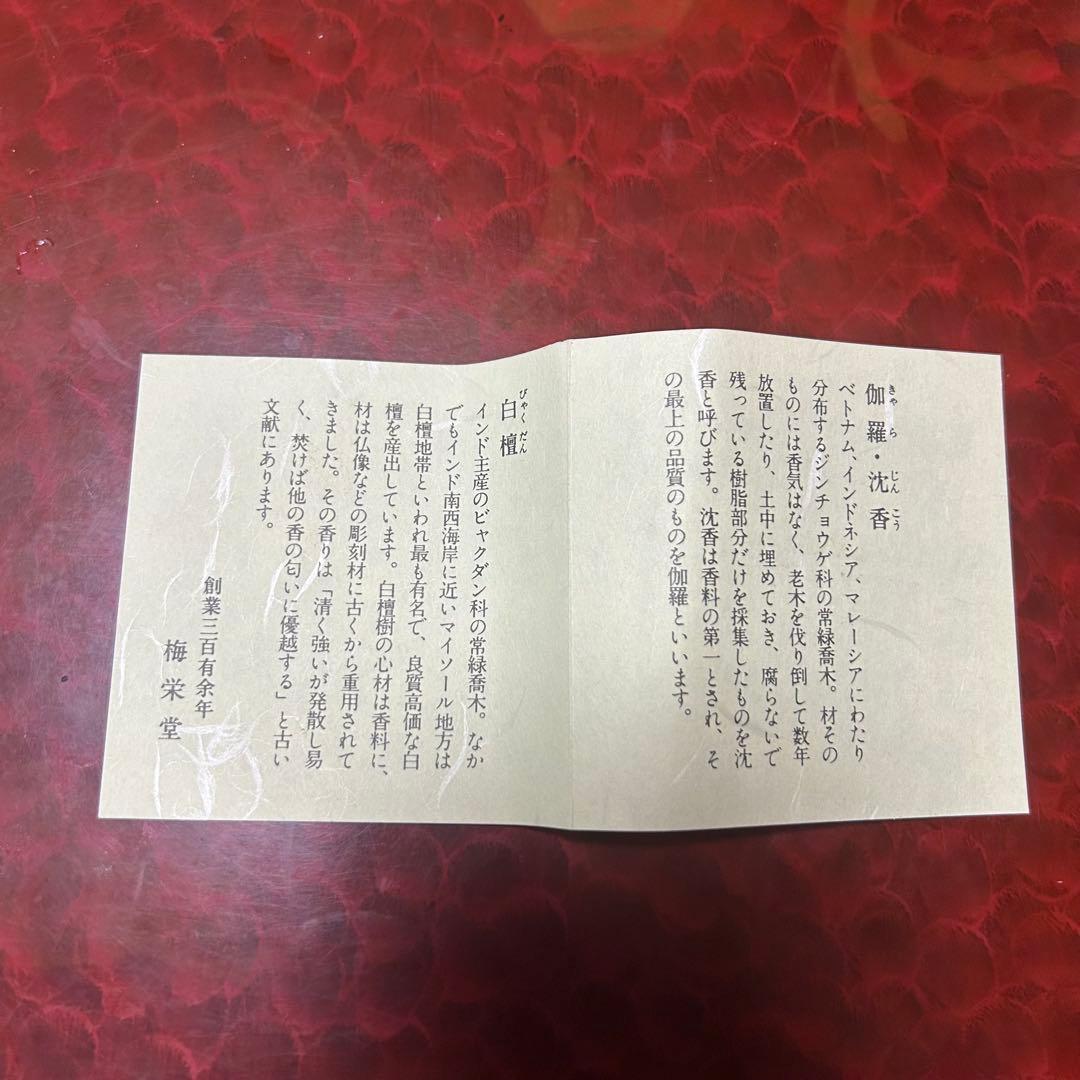 伽羅・沈香
きゃ ら じん こう
ベトナム、インドネシア、マレーシアにわたり
分布するジンチョウゲ科の常緑喬木。材その
ものには香気はなく、老木を伐り倒して数年
放置したり、土中に埋めておき、腐らないで
残っている樹脂部分だけを採集したものを沈
香と呼びます。沈香は香料の第一とされ、そ
の最上の品質のものを伽羅といいます。
白檀
びゃく だん
インド主産のビャクダン科の常緑喬木。なか
でもインド南西海岸に近いマイソール地方は
白檀地帯といわれ最も有名で、良質高価な白
檀を産出しています。白檀樹の心材は香料に、
材は仏像などの彫刻材に古くから重用されて
きました。その香りは「清く強いが発散し易
く、焚けば他の香の匂いに優越する」と古い
文献にあります。
創業三百有余年
梅栄堂